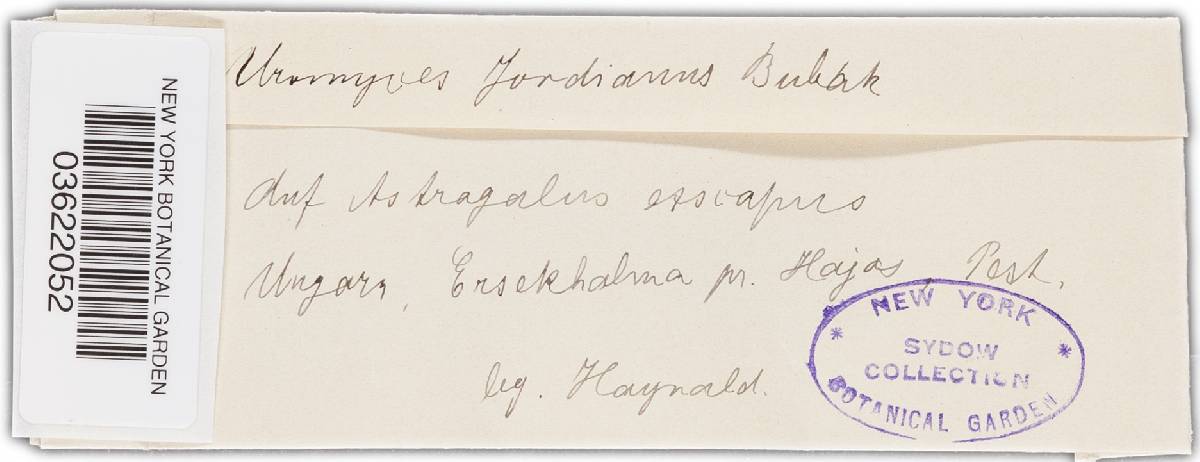 Uromyces Jordianus Bubák
Auf Astragalus exscapus
Ungarn, Érsekhalma pr. Hajos, Pest.
leg. Haynald.
NEW YORK
SYDOW
COLLECTION
BOTANICAL GARDEN
NEW YORK BOTANICAL GARDEN
03622052